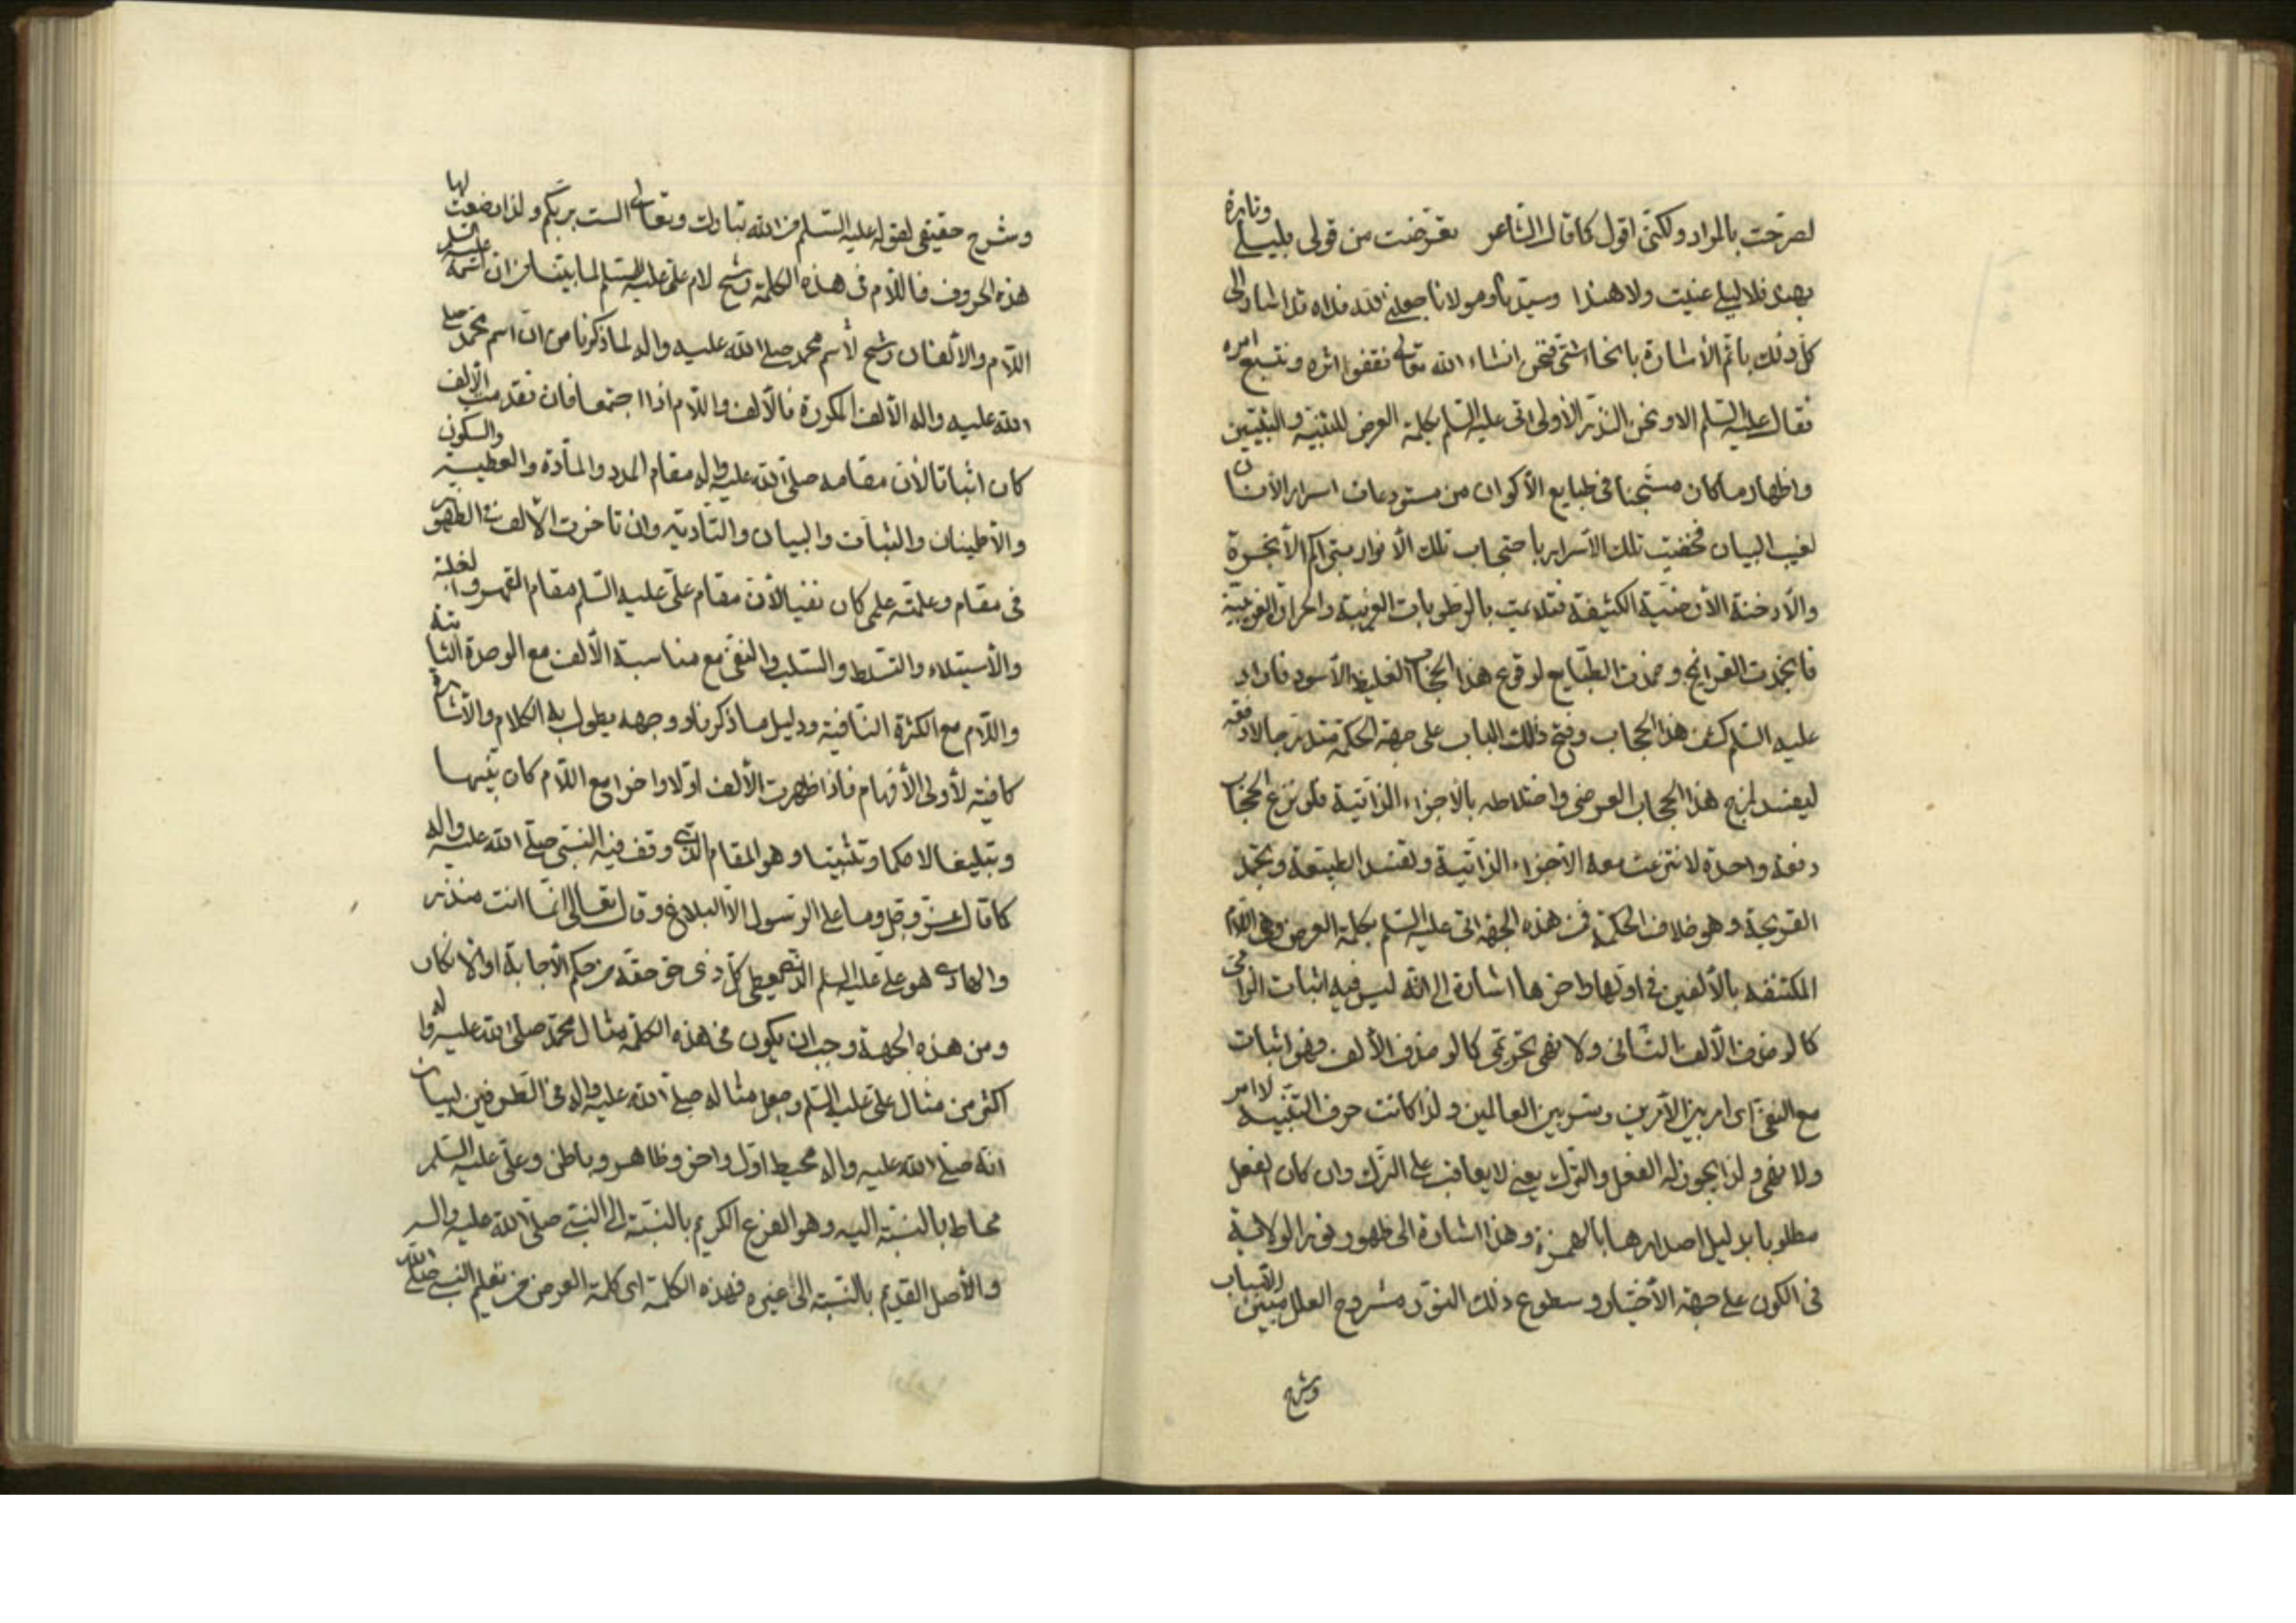 لصرّحت بالمراد ولكنّى اقول كما قال الشاعر تعرّضت من قولى بليلى وتارة
بهند فلا ليلى عنيت ولا هندا وسيّدنا ومولانا جعلنى الله فداه قد اشار الى
كلّ ذلك باتمّ الأشارة بانحاء شتّى فنحن انشاء الله تعالى نقفوا اثره ونتبع امره
فقال عليه السّلم الا ونحن النذر الأولى اتى عليه السّلم بكلمة العرض للتنبيه والتبيين
واظهار ما كان مستجنا فى طبايع الأكوان من مستودعات اسرار
لغيب البيان فخفيت تلك الأسرار باحتجاب تلك الأنوار بتراكم الأبخرة
والأدخنة الأرضيّة الكثيفة بالرطوبات الغريبة
فانجمدت القرايح وخمدت الطبّايع لوقوع هذا الحجاب الغليظ الأسود فاراد
عليه السّلم كشف هذا الحجاب وفتح ذلك الباب على جهة الحكمة متدرّجا لا دفعة
هذا الحجاب العرضى واختلاطه بالأجزاء الذاتية فلو نزع الحجاب
دفعة واحدة لانتزعت معه الأجزاء الذاتيّة ولفسد الطبيعة وتجمد
القريحة وهو خلاف الحكمة فمن هذه الجهة اتى عليه السّلم بكلمة العرض وهى اللّام
المكتنفة بالألفين فى اوّلها واخرها اشارة الى انّه ليس فيه اثبات الزامى
كما لو حذف الألف الثانى ولا نفى تحريمى كما لو حذف الألف فهو اثبات
مع النفى اى امر بين الأمرين وستر بين العالمين ولذا كانت حرف التنبيه لا امر
ولا نفى ولذا يجوز له الفعل والترك يعنى لا يعاقب على الترك وان كان الفعل
مطلوبا بدليل اصدارها بالهمزة وهذا اشارة الى ظهور نور الولاية
فى الكون على جهة الأختيار وسطوع ذلك النوّر مشروح العلل مبيّن الأسباب
وشرح
وشرح حقيقى لقوله عليه السّلم من الله تبارك وتعالى الست بربّكم ولذا وضعت لها
هذه الحروف فاللّام فى هذه الكلمة رشح لام علىّ عليه السّلم لما بيّنا من ان اسمه عليه السّلم
اللّام والألفان رشح لأسم محمد صلى الله عليه واله لما ذكرنا من انّ اسم محمّد صلى
الله عليه واله الألف المكررة فالألف واللّام اذا اجتمعا فان تقدمت الألف
كان اثباتا لأن مقامه صلّى الله عليه واله مقام المدد والمادّة والعطية والسكون
والأطينان والثبات والبيان والتادية وان تاخرت الألف فى الظهور
فى مقام وعلمته على كان نفيا لأن مقام علىّ عليه السّلم مقام القهر والغلبة
والأستيلاء والتسلط والسّلب والنفى مع مناسبة الألف مع الوحدة الثابتة
واللّام مع الكثرة النافية ودليل ما ذكرنا ووجهه يطول به الكلام والأشارة
كافية لأولى الأفهام فاذا ظهرت الألف اوّلا واخرا مع اللّام كان تنبيها
وتبليغا لا حكما وتثبيتا وهو المقام الذى وقف فيه النبى صلّى الله عليه واله
كما قال عزّ وجل وما على الرسول الّا البلاغ وقال تعالى انّما انت منذر
والهادى هو علىّ عليه السلم الذى يعطى كلّ ذى حق حقّه من حكم الأجابة او الأنكار
ومن هذه الجهة وجب ان يكون فى هذه الكلمة مثال محمّد صلّى الله عليه واله
اكثر من مثال علىّ عليه السّلم وجعل مثاله صلّى الله عليه واله فى الطرفين لبيان
انّه صلّى الله عليه واله محيط اوّل واخر وظاهر وباطن وعلىّ عليه السّلم
محاط بالنّسبة اليه وهو الفرع الكريم بالنّسبة الى النبىّ صلّى الله عليه واله
والأصل القديم بالنّسبة الى غيره فهذه الكلمة اى كلمة العرض من تعليم النبى صلّى الله